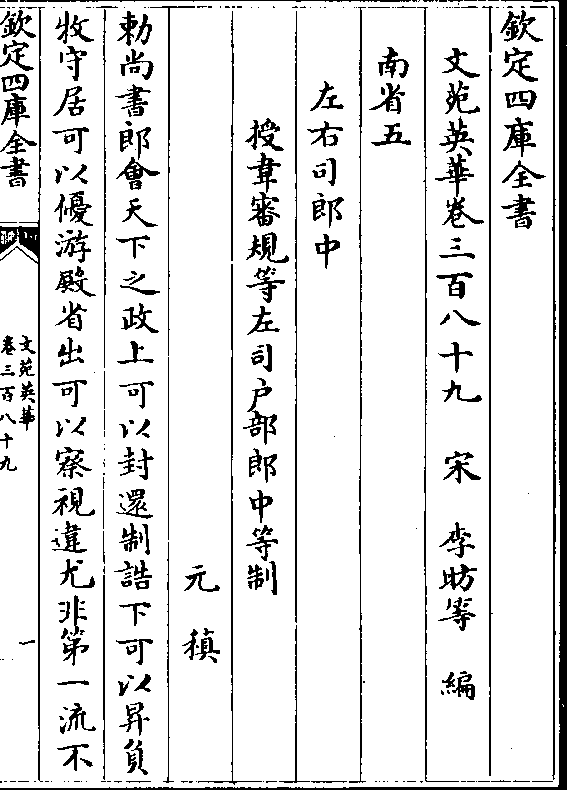 欽定四庫全書
文苑英華卷三百八十九　宋　李昉等　編
南省五
左右司郎中
授韋審規等左司户部郎中等制
元稹
勅尚書郎會天下之政上可以封還制誥下可以昇負
牧守居可以優游殿省出可以察視違尤非第一流不
欽定四庫全書
文苑英華
卷三百八十九
一